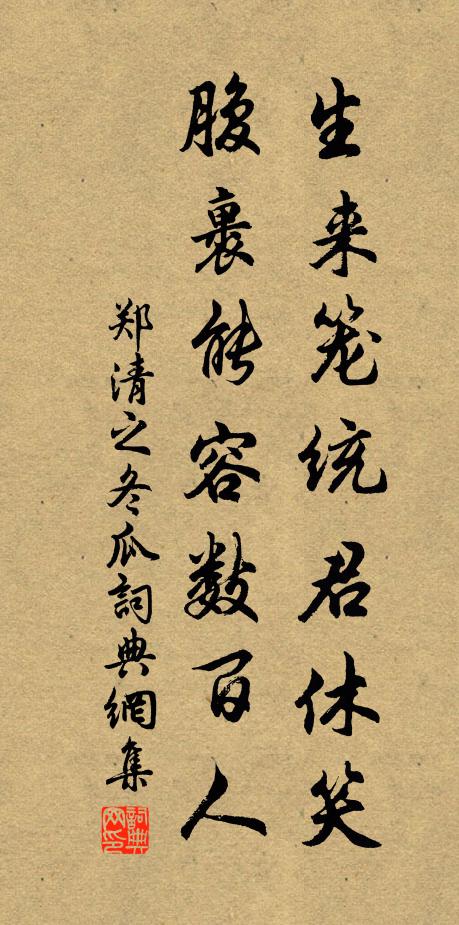 生来笼统君休笑
腹裏能容数百人
郑清之冬瓜詞典網集
詞典网印